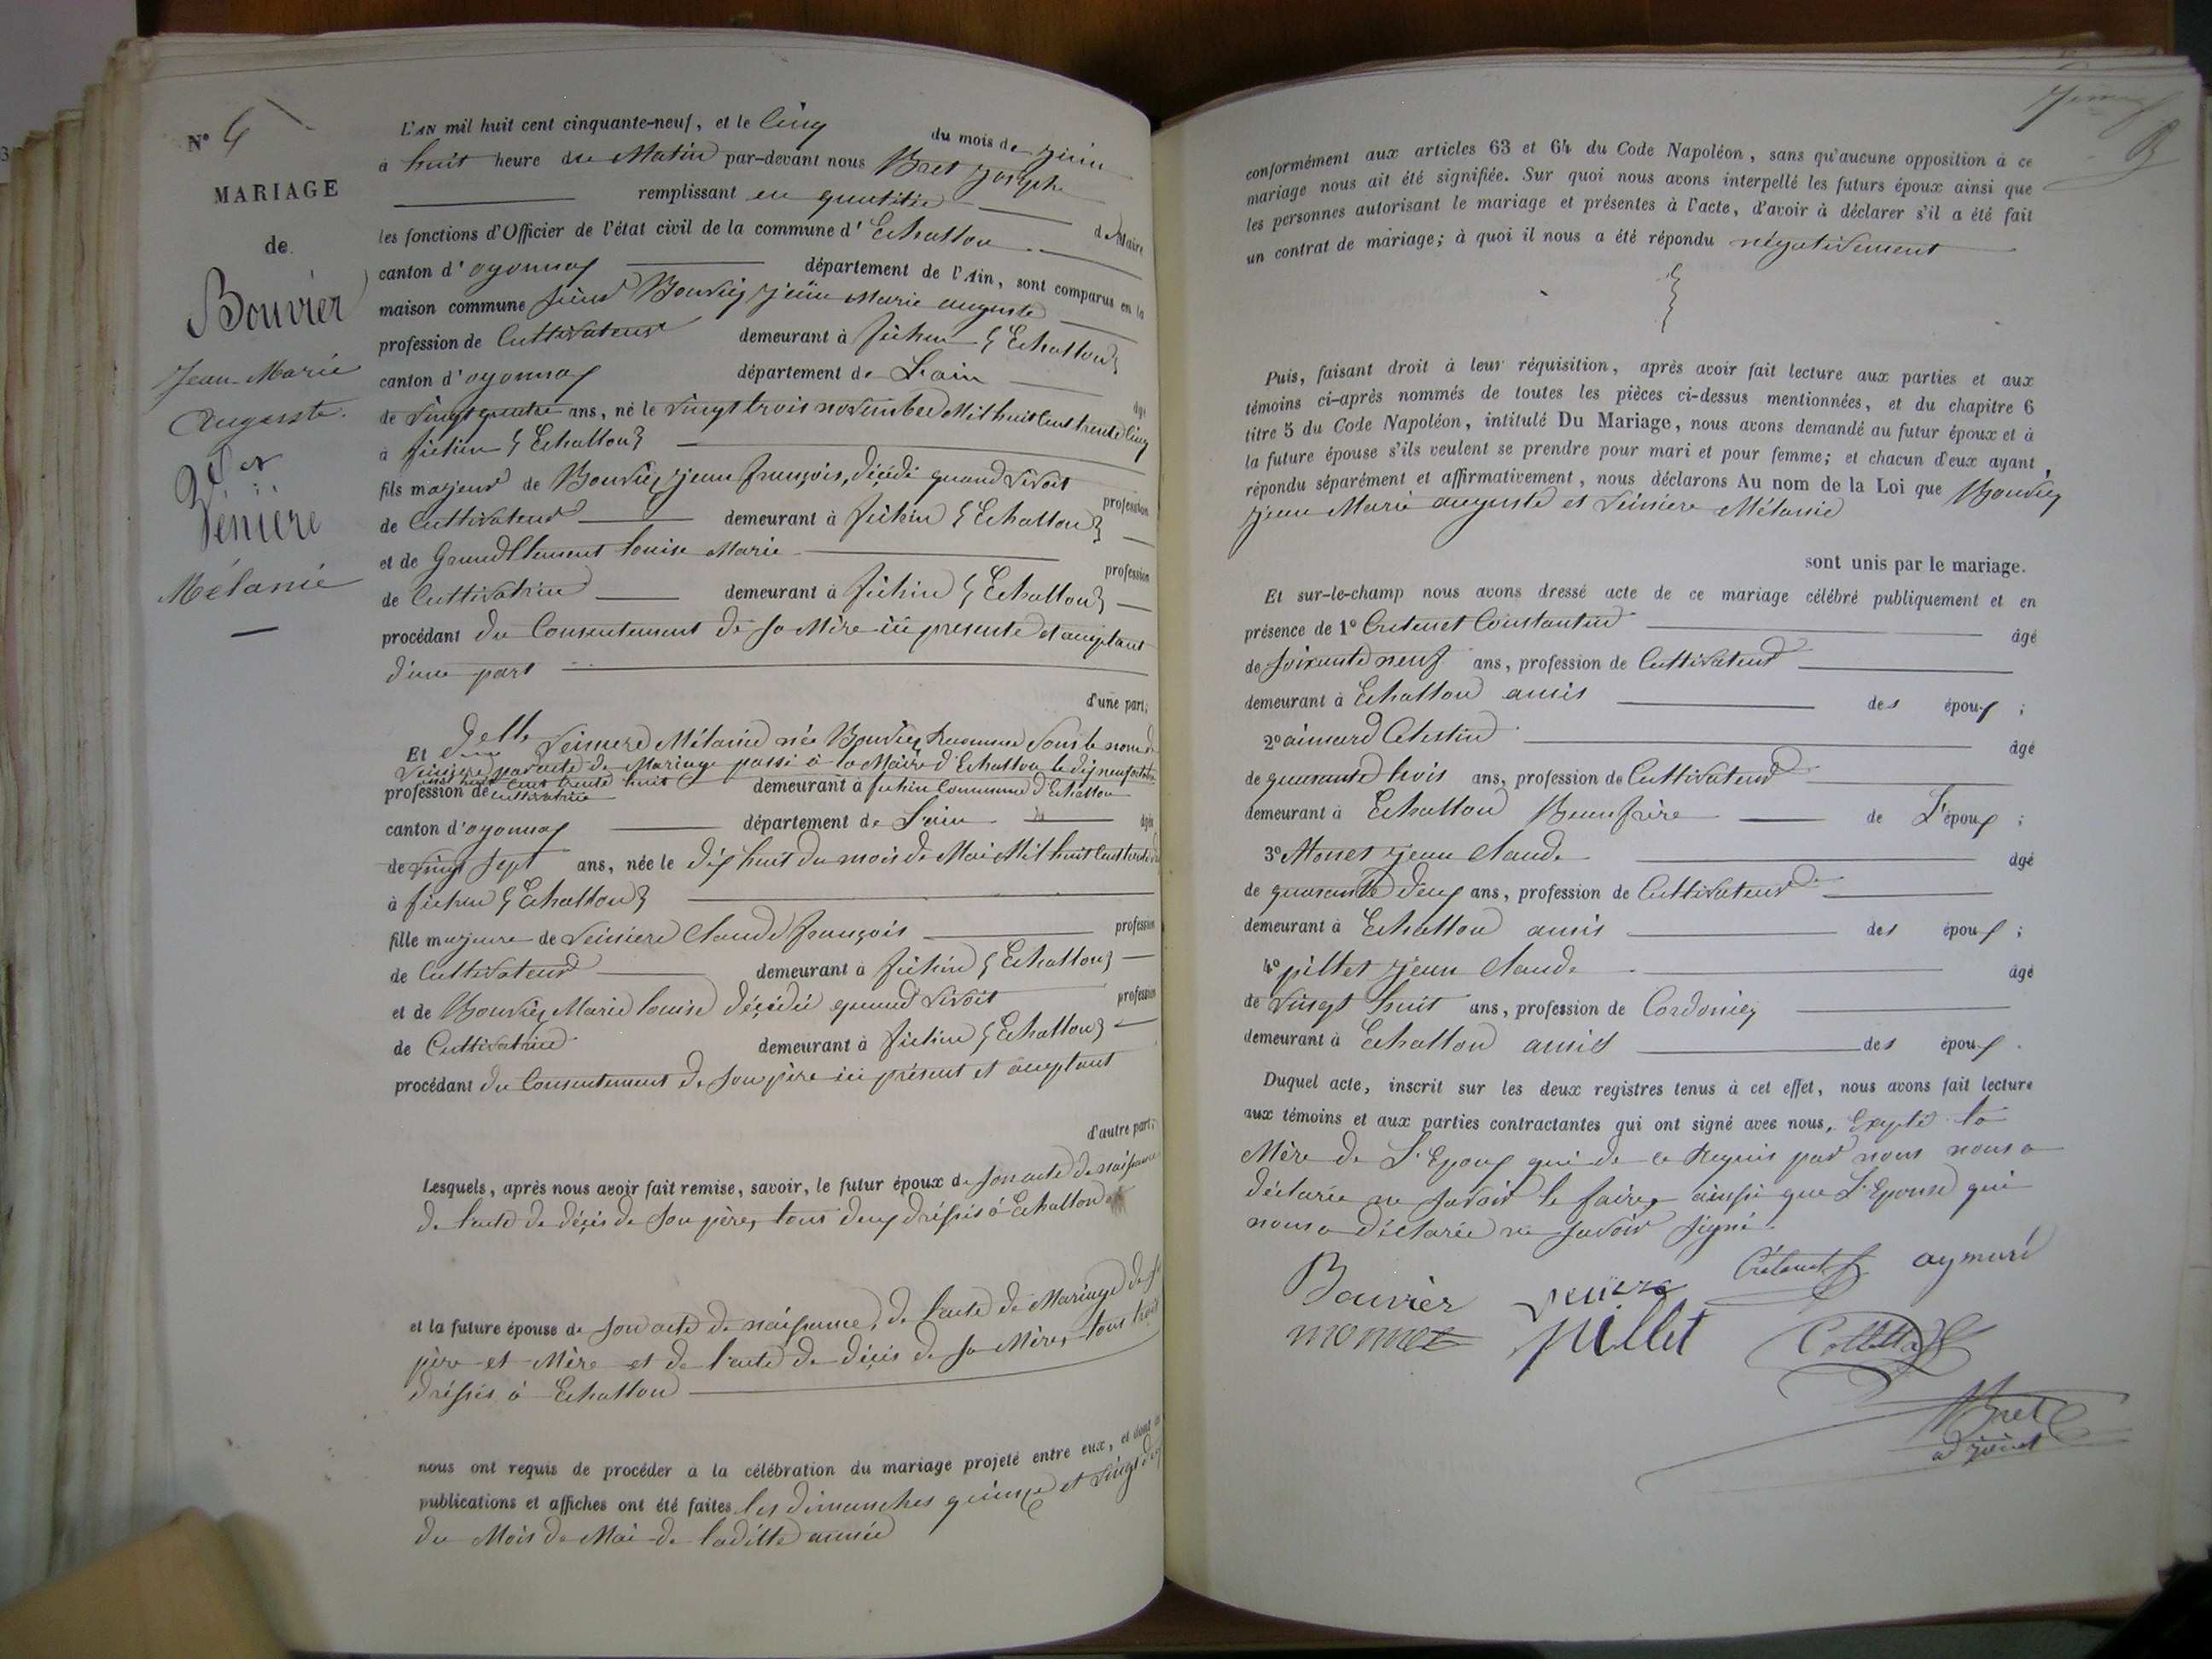 N° 4
MARIAGE
de
Bouvier
Jean-Marie
Auguste.
Et
Vénière
Mélanie
L'AN mil huit cent cinquante-neuf, et le Cinq du mois de juin
à huit heure du Matin par-devant nous Bret Josephe
remplissant en quallité de Maire
les fonctions d'Officier de l'état civil de la commune d' Echallon
canton d' oyonnax département de l'Ain, sont comparus en la
maison commune sieur Bouvier jean Marie auguste
profession de Cultivateur demeurant à { Echallon }
canton d' oyonnax département de L'ain âgé
de Vingt quatre ans, né le Vingt trois novembre Mil huit Cent trente Cinq
à { Echallon }
fils majeur de Bouvier jean françois, décédé quand Vivoit profession
de Cultivateur demeurant à { Echallon }
et de Grandclement louise Marie profession
de Cultivatrice demeurant à { Echallon }
procédant du Consentement de sa Mère ici presente et acceptant
d'une part
d'une part;
Et delle Veiniere Mélanie née Bouvier Reconnue sous le nom de
Veiniere par acte de Mariage passé à la Mairie d'Echallon le dix neuf
huit Cent trente huit
profession de Cultivatrice demeurant à Commune d'Echallon
canton d' oyonnax département de L'ain âgée
de Vingt sept ans, née le dix huit du mois de Mai Mil huit Cent trente
à { Echallon }
fille majeure de Veiniere Claude françois profession
de Cultivateur demeurant à { Echallon }
et de Bouvier Marie louise décédée quand Vivoit profession
de Cultivatrice demeurant à { Echallon }
procédant du Consentement de son père ici présent et acceptant
d'autre part;
Lesquels, après nous avoir fait remise, savoir, le futur époux de son acte de naissance
de l'acte de décès de son père, tous deux dréssés à Echallon
et la future épouse de son acte de naissance, de l'acte de Mariage de ses
père et Mère et de l'acte de décès de sa Mère, tous trois
dréssés à Echallon
nous ont requis de procéder à la célébration du mariage projeté entre eux, et dont les
publications et affiches ont été faites les dimanches quinze et Vingt deux
du Mois de Mai de laditte année
conformément aux articles 63 et 64 du Code Napoléon, sans qu'aucune opposition à ce
mariage nous ait été signifiée. Sur quoi nous avons interpellé les futurs époux ainsi que
les personnes autorisant le mariage et présentes à l'acte, d'avoir à déclarer s'il a été fait
un contrat de mariage; à quoi il nous a été répondu négativement
Puis, faisant droit à leur réquisition, après avoir fait lecture aux parties et aux
témoins ci-après nommés de toutes les pièces ci-dessus mentionnées, et du chapitre 6
titre 5 du Code Napoléon, intitulé Du Mariage, nous avons demandé au futur époux et à
la future épouse s'ils veulent se prendre pour mari et pour femme; et chacun d'eux ayant
répondu séparément et affirmativement, nous déclarons Au nom de la Loi que Bouvier
jean Marie auguste et Veiniere Mélanie
sont unis par le mariage.
Et sur-le-champ nous avons dressé acte de ce mariage célébré publiquement et en
présence de 1° Cretenet Constantin âgé
de soixante neuf ans, profession de Cultivateur
demeurant à Echallon amis des époux ;
2° aimard Celestin âgé
de quarante trois ans, profession de Cultivateur
demeurant à Echallon Beau frère de L'époux ;
3° Monet jean Claude âgé
de quarante deux ans, profession de Cultivateur
demeurant à Echallon amis des époux ;
4° pillet jean Claude âgé
de Vingt huit ans, profession de Cordonier
demeurant à Echallon amis des époux .
Duquel acte, inscrit sur les deux registres tenus à cet effet, nous avons fait lecture
aux témoins et aux parties contractantes qui ont signé avec nous, Excepté la
Mère de L'Epoux qui de ce Requis par nous nous a
déclarée ne savoir le faire, ainsi que L'Epouse qui
nous a déclarée ne savoir signé.
Bouvier Cretenet aymard
monnet pillet
Bret
adjoint